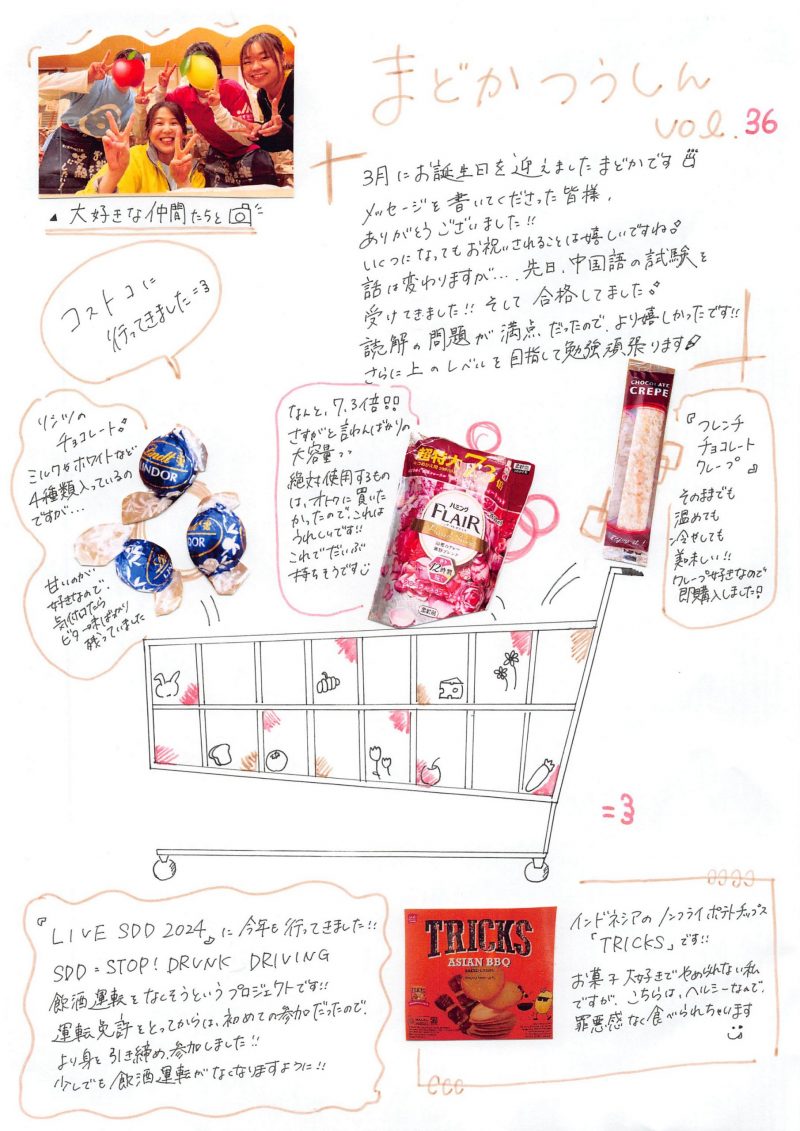 まどかつうしん
vol.36
▲ 大好きな仲間たちと
3月にお誕生日を迎えましたまどかです
メッセージを書いてくださった皆様、
ありがとうございました!!
いくつになってもお祝いされることは嬉しいですね♪
話は変わりますが…、先日、中国語の試験を
受けてきました!! そして合格してました♪
読解の問題が満点だったので、より嬉しかったです!!
さらに上のレベルを目指して勉強頑張ります♪
コストコに
行ってきました=3
リンツの
チョコレート♪
ミルクやホワイトなど
4種類入っているの
ですが…
甘いのが
好きなので、
気付いたら
ビター味ばかり
残っていました
Lindt
LINDOR
LINDOR
なんと、7.3倍!!
さすがと言わんばかりの
大容量っっ
絶対使用するもの
は、オトクに買いた
かったので、これは
うれしいです!!
これでだいぶ
持ちそうです
超特大
7.3倍
ハミング
FLAIR
12時間
柔軟剤
CHOCOLATE
CREPE
『フレンチ
チョコレート
クレープ』
そのままでも
温めても
冷やしても
美味しい!!
クレープ好きなので
即購入しました!
=3
『LIVE SDD 2024』に今年も行ってきました!!
SDD = STOP! DRUNK DRIVING
飲酒運転をなくそうというプロジェクトです!!
運転免許をとってからは、初めての参加だったので、
より身を引き締め、参加しました!!
少しでも飲酒運転がなくなりますように!!
TRICKS
ASIAN BBQ
インドネシアのノンフライポテトチップス
「TRICKS」です!!
お菓子大好きでやめられない私
ですが、こちらは、ヘルシーなんで、
罪悪感なく食べられちゃいます